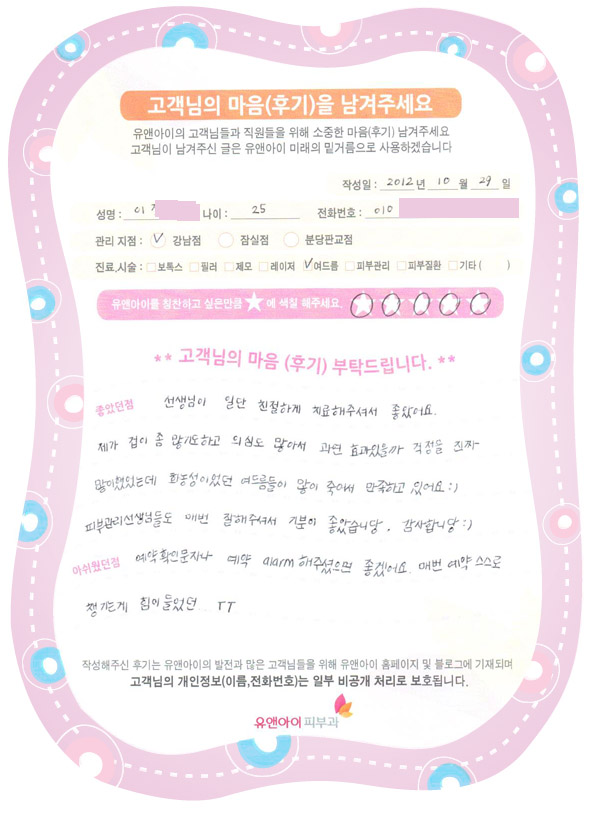 고객님의 마음(후기)을 남겨주세요
유앤아이의 고객님들과 직원들을 위해 소중한 마음(후기) 남겨주세요
고객님이 남겨주신 글은 유앤아이 미래의 밑거름으로 사용하겠습니다
작성일 : 2012 년 10 월 29 일
성명 : 이 나이 : 25 전화번호 : 010
관리 지점 : 강남점 잠실점 분당판교점
진료,시술 : 보톡스 필러 제모 레이저 여드름 피부관리 피부질환 기타 ( )
유앤아이를 칭찬하고 싶은만큼 ★ 에 색칠 해주세요. ★ ★ ★ ★ ★
** 고객님의 마음 (후기) 부탁드립니다. **
좋았던점 선생님이 일단 친절하게 치료해주셔서 좋았어요.
제가 겁이 좀 많기도하고 의심도 많아서 과연 효과있을까 걱정을 진짜
많이했었는데 화농성이었던 여드름들이 많이 죽어서 만족하고 있어요:)
피부관리선생님들도 매번 잘해주셔서 기분이 좋았습니당, 감사합니당:)
아쉬웠던점 예약확인문자나 예약 alarm 해주셨으면 좋겠어요. 매번 예약 스스로
챙기는게 힘이들었던 TT
작성해주신 후기는 유앤아이의 발전과 많은 고객님들을 위해 유앤아이 홈페이지 및 블로그에 기재되며
고객님의 개인정보(이름,전화번호)는 일부 비공개 처리로 보호됩니다.
유앤아이피부과